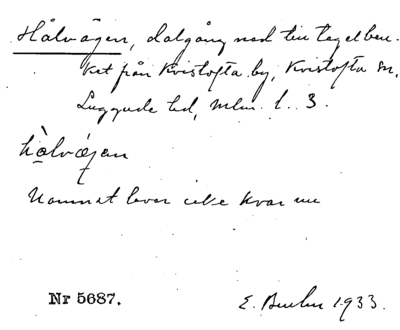 Hålvägen, dalgång ned till tegelbru-
ket från Kvistofta by, Kvistofta sn,
Luggude hd, Mlm. l. 3.
hålvägan
Namnet lever icke kvar nu
Nr 5687.
E. 1933.